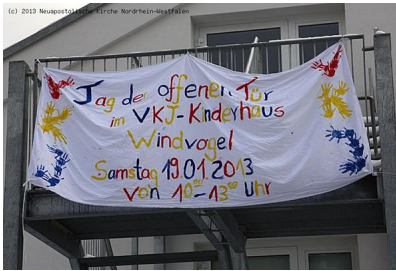 (c) 2013 Neuapostolische Kirche Nordrhein-Westfalen
Tag der offenen Tür
im VKJ-Kinderhaus
Windvogel
Samstag 19.01.2013
von 10⁰⁰-13⁰⁰ Uhr